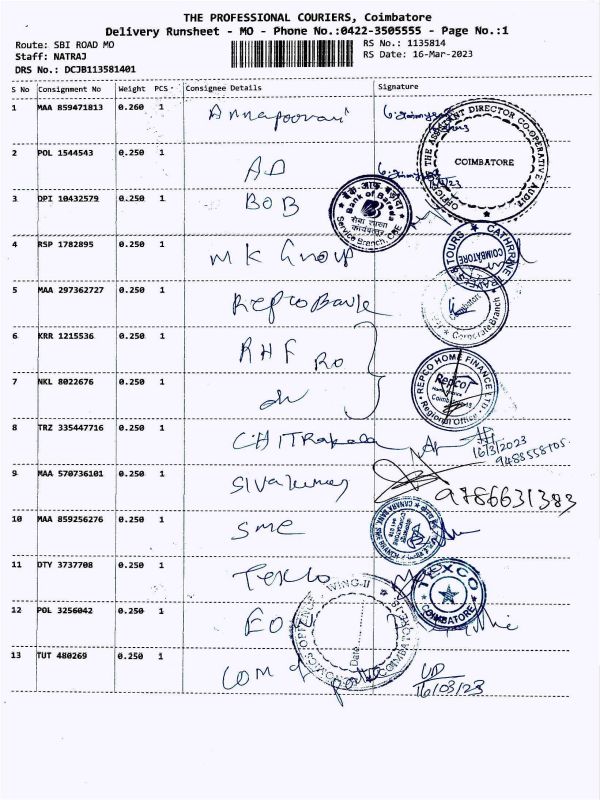 THE PROFESSIONAL COURIERS, Coimbatore
Delivery Runsheet - MO - Phone No.:0422-3505555 - Page No.:1
Route: SBI ROAD MO
RS No.: 1135814
Staff: NATRAJ
RS Date: 16-Mar-2023
DRS No.: DCJB113581401
S No Consignment No Weight PCS Consignee Details Signature
1 MAA 859471813 0.260 1 Annapoorani
THE ASSISTANT DIRECTOR CO-OPERATIVE AUDIT
COIMBATORE
2 POL 1544543 0.250 1 AD
3 DPI 10432579 0.250 1 BOB
बैंक ऑफ़ बड़ौदा
Bank of Baroda
सेवा शाखा
Service Branch, CBE
4 RSP 1782895 0.250 1 MK Group
CATHRRINE TRAVELS & TOURS
COIMBATORE
5 MAA 297362727 0.250 1 Repco Bank
Coimbatore
Corporate Branch
6 KRR 1215536 0.250 1 RHF RO
REPCO HOME FINANCE LTD
Repco
Regional Office
7 NKL 8022676 0.250 1 do
8 TRZ 335447716 0.250 1 CHITRakala
16/3/2023
9488558705
9 MAA 570736101 0.250 1 Sivakumar
9786631383
10 MAA 859256276 0.250 1 SME
CANARA BANK
11 DTY 3737708 0.250 1 Texco
TEXCO
COIMBATORE
12 POL 3256042 0.250 1 EO
WING-II
Date
13 TUT 480269 0.250 1 COM of
16/03/23